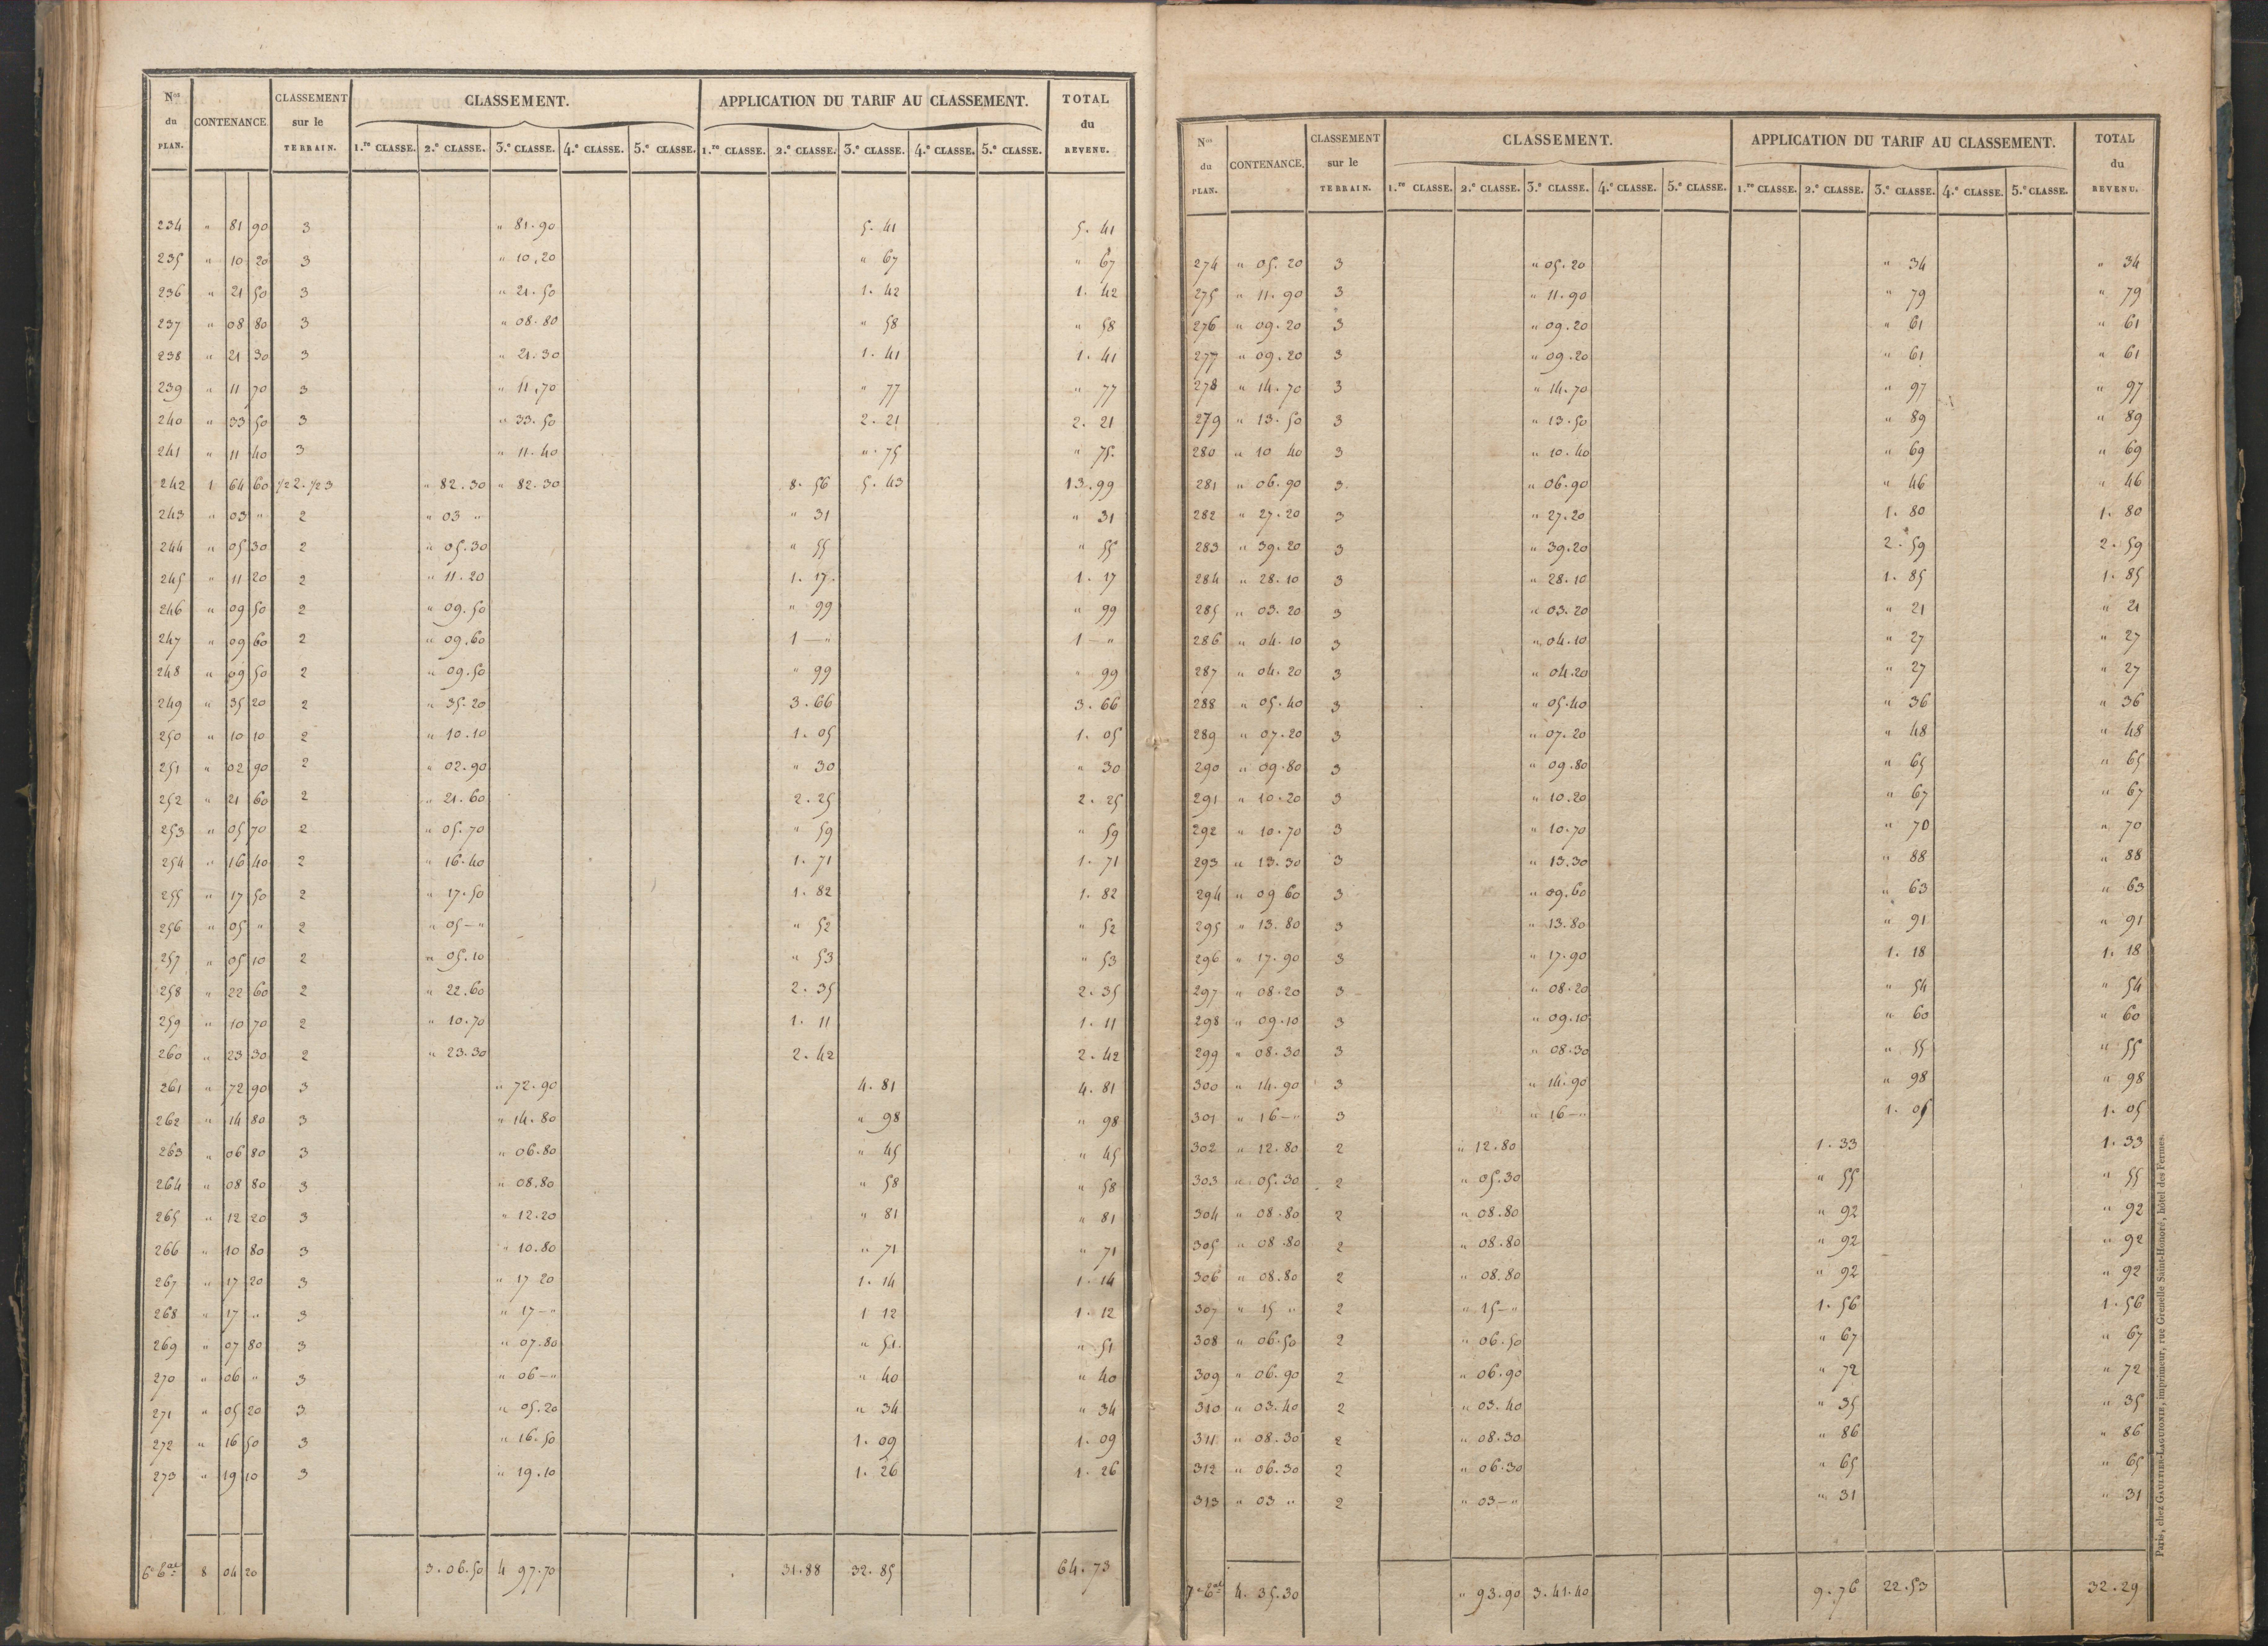 Nos du PLAN. CONTENANCE. CLASSEMENT sur le TERRAIN. CLASSEMENT. APPLICATION DU TARIF AU CLASSEMENT. TOTAL du REVENU.
1.re CLASSE. 2.e CLASSE. 3.e CLASSE. 4.e CLASSE. 5.e CLASSE. 1.re CLASSE. 2.e CLASSE. 3.e CLASSE. 4.e CLASSE. 5.e CLASSE.
234 " 81 90 3 " 81.90 5. 41 5. 41
235 " 10 20 3 " 10.20 " 67 " 67
236 " 21 50 3 " 21.50 1. 42 1. 42
237 " 08 80 3 " 08.80 " 58 " 58
238 " 21 30 3 " 21.30 1. 41 1. 41
239 " 11 70 3 " 11.70 " 77 " 77
240 " 33 50 3 " 33.50 2. 21 2. 21
241 " 11 40 3 " 11.40 " 75 " 75.
242 1 64 60 1/2 2. 1/2 3 " 82.30 " 82.30 8. 56 5. 43 13.99
243 " 03 " 2 " 03 " " 31 " 31
244 " 05 30 2 " 05.30 " 55 " 55
245 " 11 20 2 " 11.20 1. 17. 1. 17
246 " 09 50 2 " 09.50 " 99 " 99
247 " 09 60 2 " 09.60 1 — " 1 — "
248 " 09 50 2 " 09.50 " 99 " 99
249 " 35 20 2 " 35.20 3. 66 3. 66
250 " 10 10 2 " 10.10 1. 05 1. 05
251 " 02 90 2 " 02.90 " 30 " 30
252 " 21 60 2 " 21.60 2. 25 2. 25
253 " 05 70 2 " 05.70 " 59 " 59
254 " 16 40 2 " 16.40 1. 71 1. 71
255 " 17 50 2 " 17.50 1. 82 1. 82
256 " 05 " 2 " 05 — " " 52 " 52
257 " 05 10 2 " 05.10 " 53 " 53
258 " 22 60 2 " 22.60 2. 35 2. 35
259 " 10 70 2 " 10.70 1. 11 1. 11
260 " 23 30 2 " 23.30 2. 42 2. 42
261 " 72 90 3 " 72.90 4. 81 4. 81
262 " 14 80 3 " 14.80 " 98 " 98
263 " 06 80 3 " 06.80 " 45 " 45
264 " 08 80 3 " 08.80 " 58 " 58
265 " 12 20 3 " 12.20 " 81 " 81
266 " 10 80 3 " 10.80 " 71 " 71
267 " 17 20 3 " 17 20 1. 14 1. 14
268 " 17 " 3 " 17 — " 1 12 1. 12
269 " 07 80 3 " 07.80 " 51. " 51
270 " 06 " 3 " 06 — " " 40 " 40
271 " 05 20 3 " 05.20 " 34 " 34
272 " 16 50 3 " 16.50 1. 09 1. 09
273 " 19 10 3 " 19.10 1. 26 1. 26
8 04 20 3.06.50 4 97.70 31.88 32.85 64.73
Nos du PLAN. CONTENANCE. CLASSEMENT sur le TERRAIN. CLASSEMENT. APPLICATION DU TARIF AU CLASSEMENT. TOTAL du REVENU.
1.re CLASSE. 2.e CLASSE. 3.e CLASSE. 4.e CLASSE. 5.e CLASSE. 1.re CLASSE. 2.e CLASSE. 3.e CLASSE. 4.e CLASSE. 5.e CLASSE.
274 " 05. 20 3 " 05.20 " 34 " 34
275 " 11. 90 3 " 11.90 " 79 " 79
276 " 09. 20 3 " 09.20 " 61 " 61
277 " 09. 20 3 " 09.20 " 61 " 61
278 " 14. 70 3 " 14.70 " 97 " 97
279 " 13. 50 3 " 13.50 " 89 " 89
280 " 10 40 3 " 10.40 " 69 " 69
281 " 06.90 3 " 06.90 " 46 " 46
282 " 27.20 3 " 27.20 1. 80 1. 80
283 " 39.20 3 " 39.20 2. 59 2. 59
284 " 28.10 3 " 28.10 1. 85 1. 85
285 " 03. 20 3 " 03.20 " 21 " 21
286 " 04. 10 3 " 04.10 " 27 " 27
287 " 04. 20 3 " 04.20 " 27 " 27
288 " 05.40 3 " 05.40 " 36 " 36
289 " 07.20 3 " 07.20 " 48 " 48
290 " 09.80 3 " 09.80 " 65 " 65
291 " 10.20 3 " 10.20 " 67 " 67
292 " 10.70 3 " 10.70 " 70 " 70
293 " 13.30 3 " 13.30 " 88 " 88
294 " 09 60 3 " 09.60 " 63 " 63
295 " 13. 80 3 " 13.80 " 91 " 91
296 " 17.90 3 " 17.90 1. 18 1. 18
297 " 08.20 3 " 08.20 " 54 " 54
298 " 09.10 3 " 09.10 " 60 " 60
299 " 08.30 3 " 08.30 " 55 " 55
300 " 14.90 3 " 14.90 " 98 " 98
301 " 16 — " 3 " 16 — " 1. 05 1. 05
302 " 12.80 2 " 12.80 1. 33 1. 33
303 " 05.30 2 " 05.30 " 55 " 55
304 " 08.80 2 " 08.80 " 92 " 92
305 " 08.80 2 " 08.80 " 92 " 92
306 " 08.80 2 " 08.80 " 92 " 92
307 " 15 " 2 " 15 — " 1. 56 1. 56
308 " 06.50 2 " 06.50 " 67 " 67
309 " 06.90 2 " 06.90 " 72 " 72
310 " 03.40 2 " 03.40 " 35 " 35
311 " 08.30 2 " 08.30 " 86 " 86
312 " 06.30 2 " 06.30 " 65 " 65
313 " 03 " 2 " 03 — " " 31 " 31
4. 35.30 " 93.90 3.41.40 9.76 22.53 32.29
Paris, chez GAULTIER-LAGUIONIE, imprimeur, rue Grenelle Saint-Honoré, hôtel des Fermes.